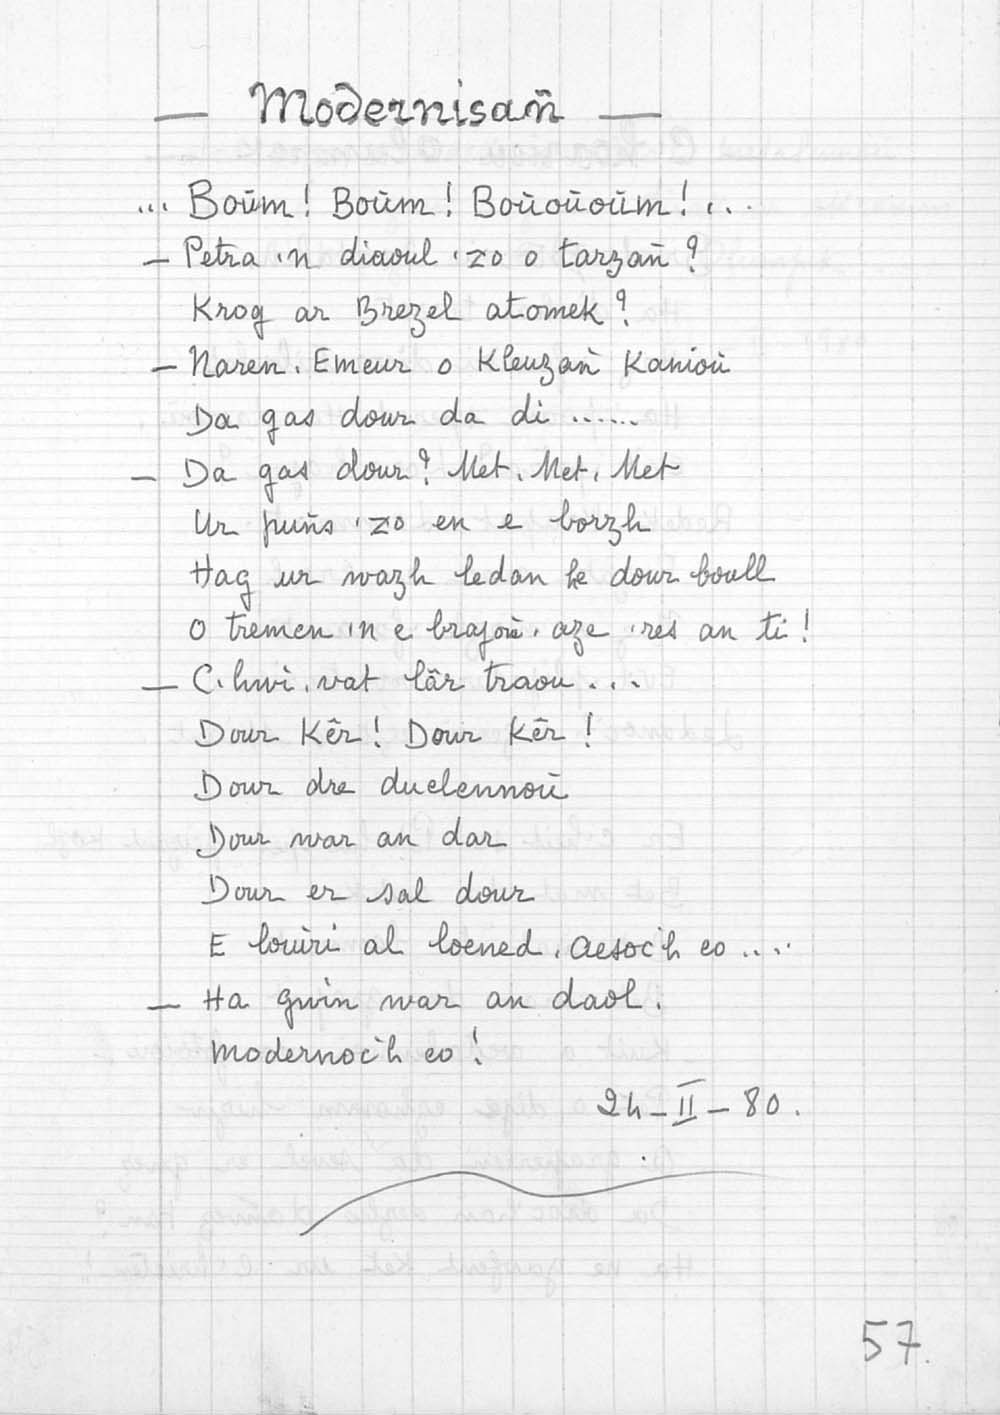 — Modernisañ —
... Boùm! Boùm! Boùoùoùm!...
— Petra 'n diaoul 'zo o tarzañ?
Krog ar Brezel atomek?
— Naren. Emeur o kleuzañ kanioù
Da gas dour da di ......
— Da gas dour? Met, Met, Met
Ur puñs 'zo en e borzh
Hag ur wazh ledan he dour boull
O tremen 'n e brajoù, aze 'res an ti!
— C'hwi, vat lâr traou...
Dour Kêr! Dour Kêr!
Dour dre duelennoù
Dour war an dar
Dour er sal dour
E louiri al loened. Aesoc'h eo ....
— Ha gwin war an daol.
Modernoc'h eo!
24-II-80.
57.